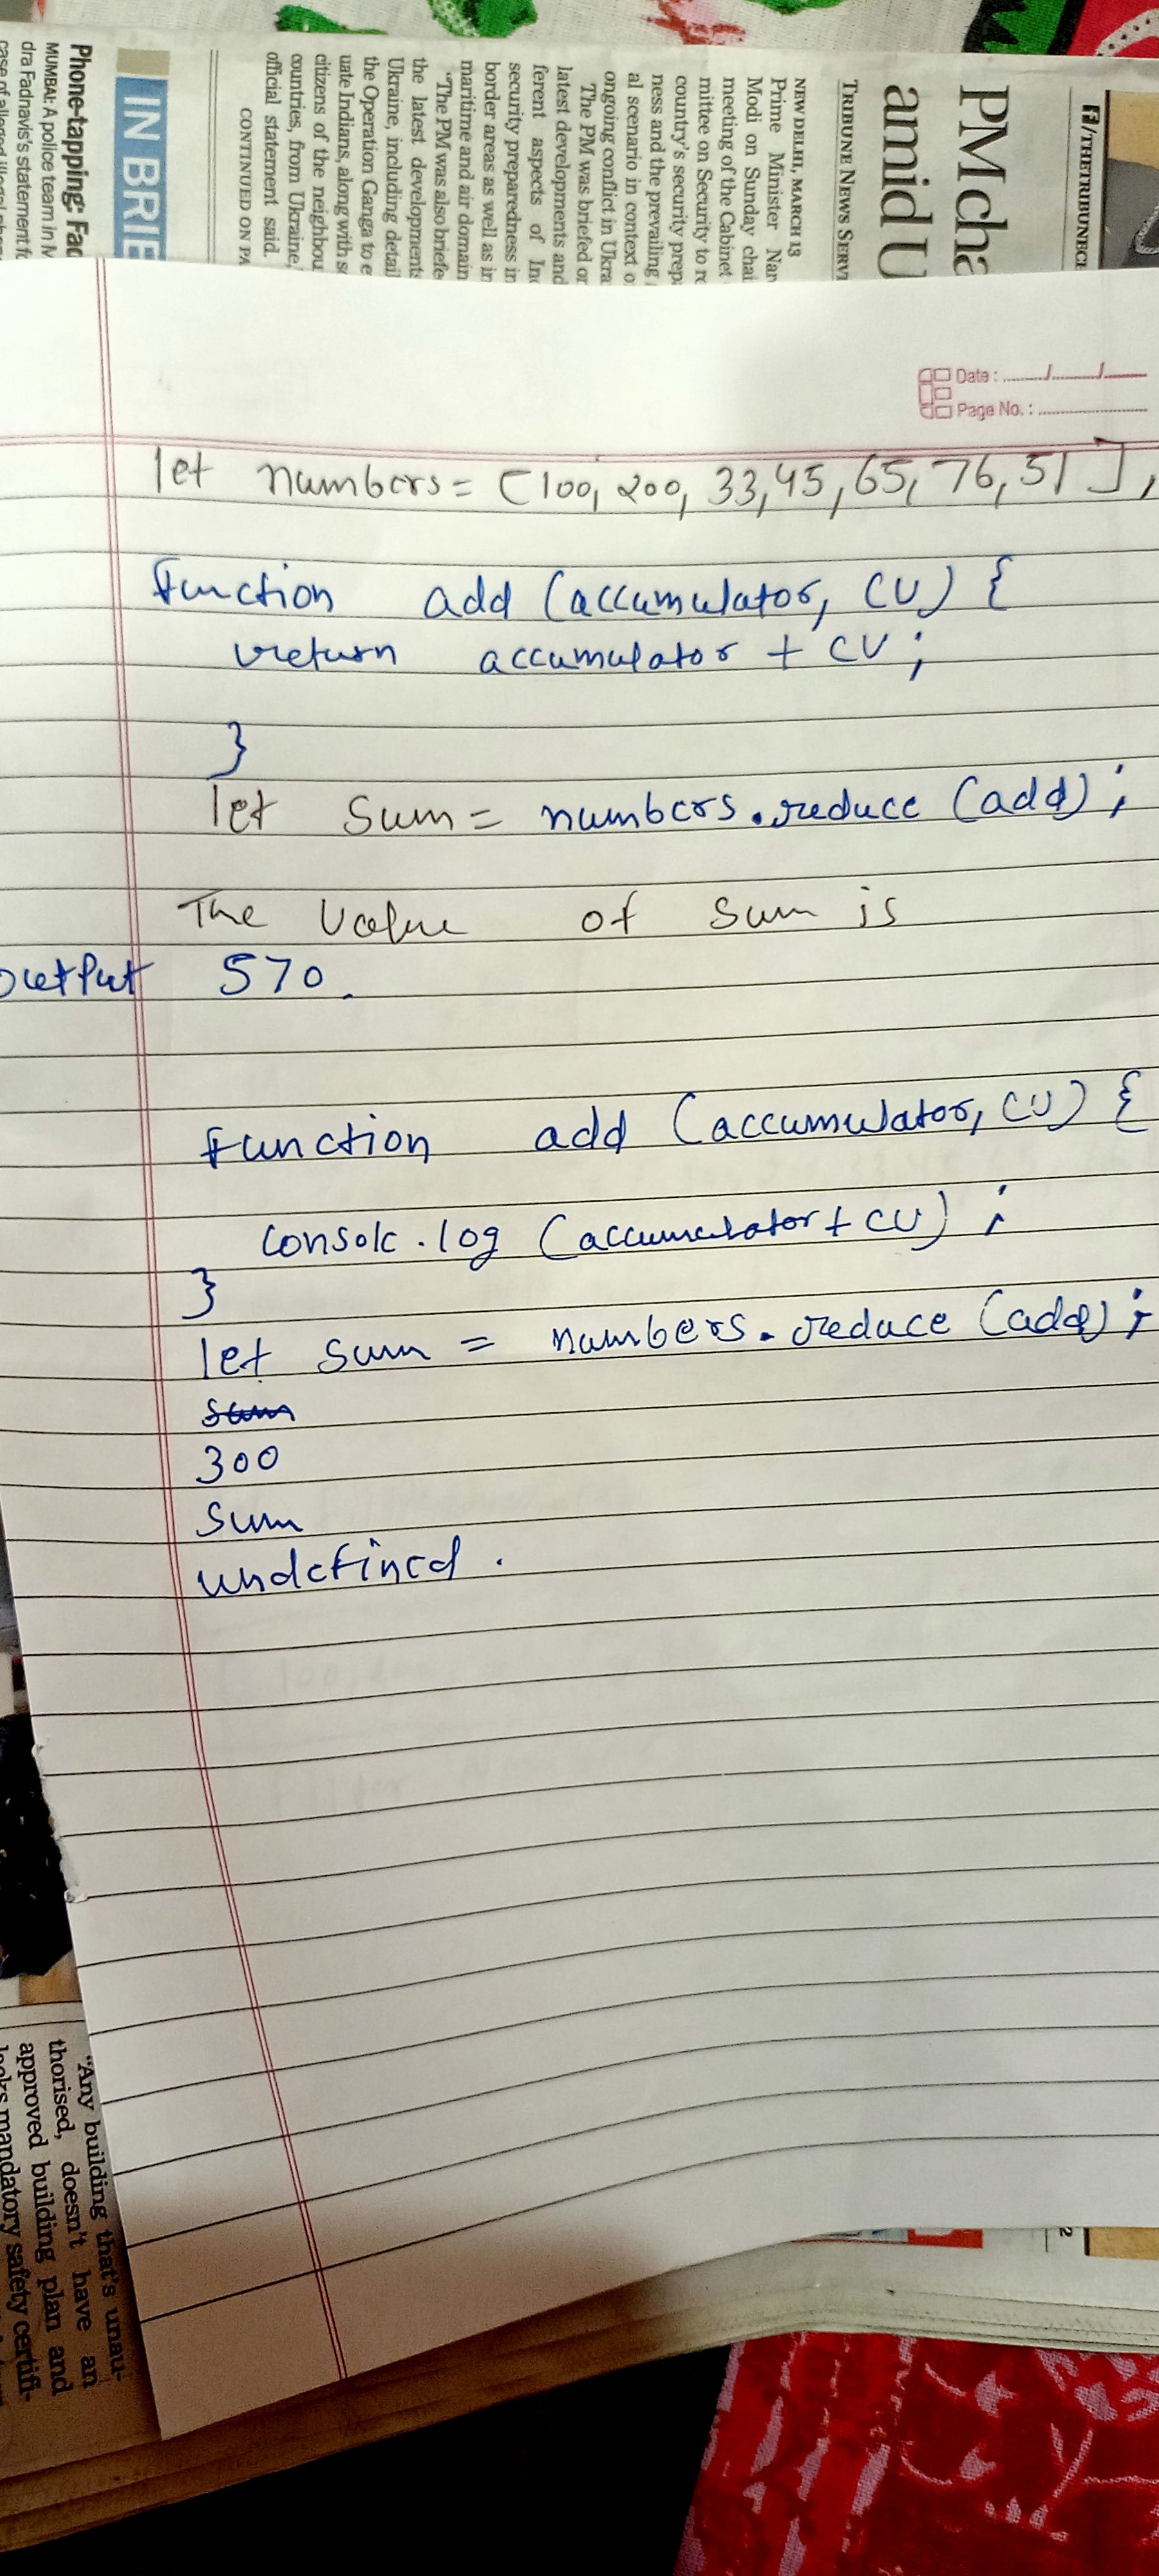 f/THETRIBUNECH
PM cha
amid U
TRIBUNE NEWS SERVI
NEW DELHI, MARCH 13
Prime Minister Nar
Modi on Sunday chai
meeting of the Cabinet
mittee on Security to re
country's security prep
ness and the prevailing
al scenario in context o
ongoing conflict in Ukra
The PM was briefed or
latest developments and
ferent aspects of Ind
security preparedness in
border areas as well as in
maritime and air domain
"The PM was also briefe
the latest developments
Ukraine, including detail
the Operation Ganga to e
uate Indians, along with so
citizens of the neighbou
countries, from Ukraine,
official statement said.
CONTINUED ON PA
IN BRIE
Phone-tapping: Fad
MUMBAI: A police team in M
dra Fadnavis's statement fo
Date : ......../........./.........
Page No. : ........................
let numbers = [100, 200, 33, 45, 65, 76, 51],
function add (accumulator, CV) {
return accumulator + CV;
}
let sum = numbers.reduce (add);
The value of sum is
output 570.
function add (accumulator, CV) {
console.log (accumulator + CV);
}
let sum = numbers.reduce (add);
sum
300
sum
undefined.
"Any building that's unau-
thorised, doesn't have an
approved building plan and
mandatory safety certifi-
2